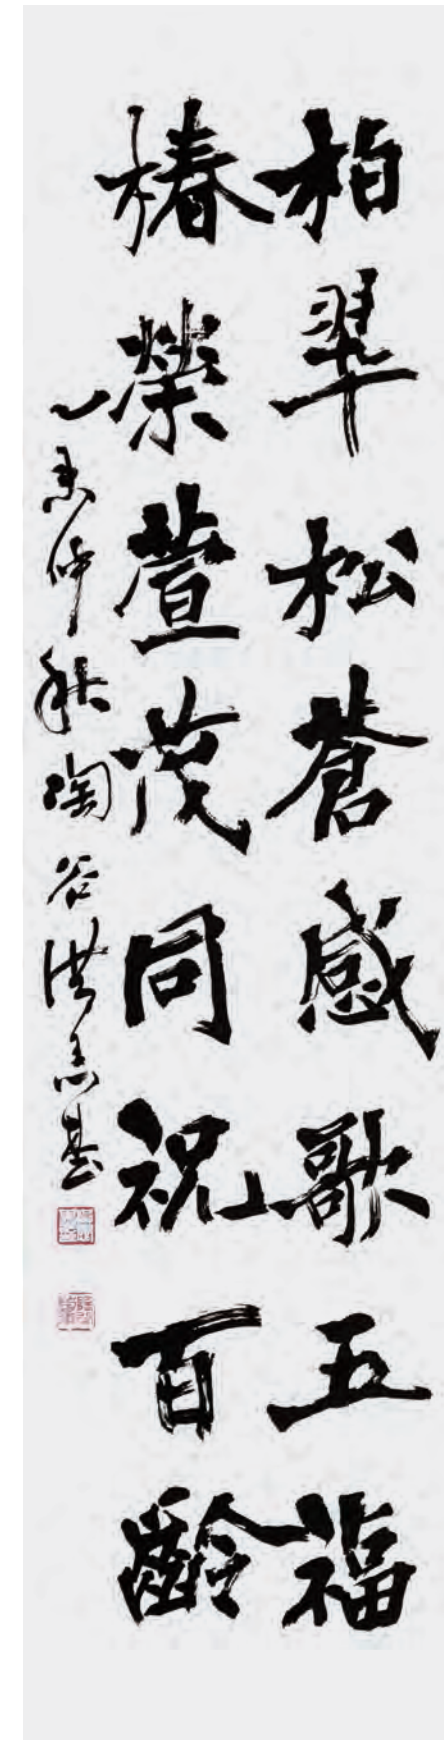 柏翠松蒼感歌五福
椿榮萱茂同祝百齡
仲秋陶谷洪基